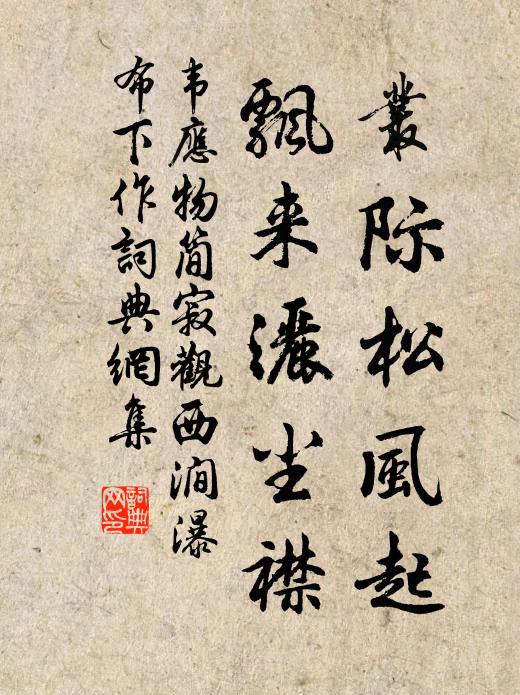 叢际松風起
飄来灑尘襟
韦應物简寂觀西澗瀑
布下作詞典網集
詞典
网印